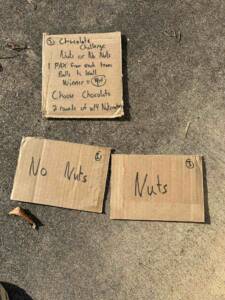 ① Chocolate
Challenge
Nuts or No Nuts
1 PAX from each team
Balls to Wall
Winner =
Choose Chocolate
2 rounds of
①
No Nuts
①
Nuts